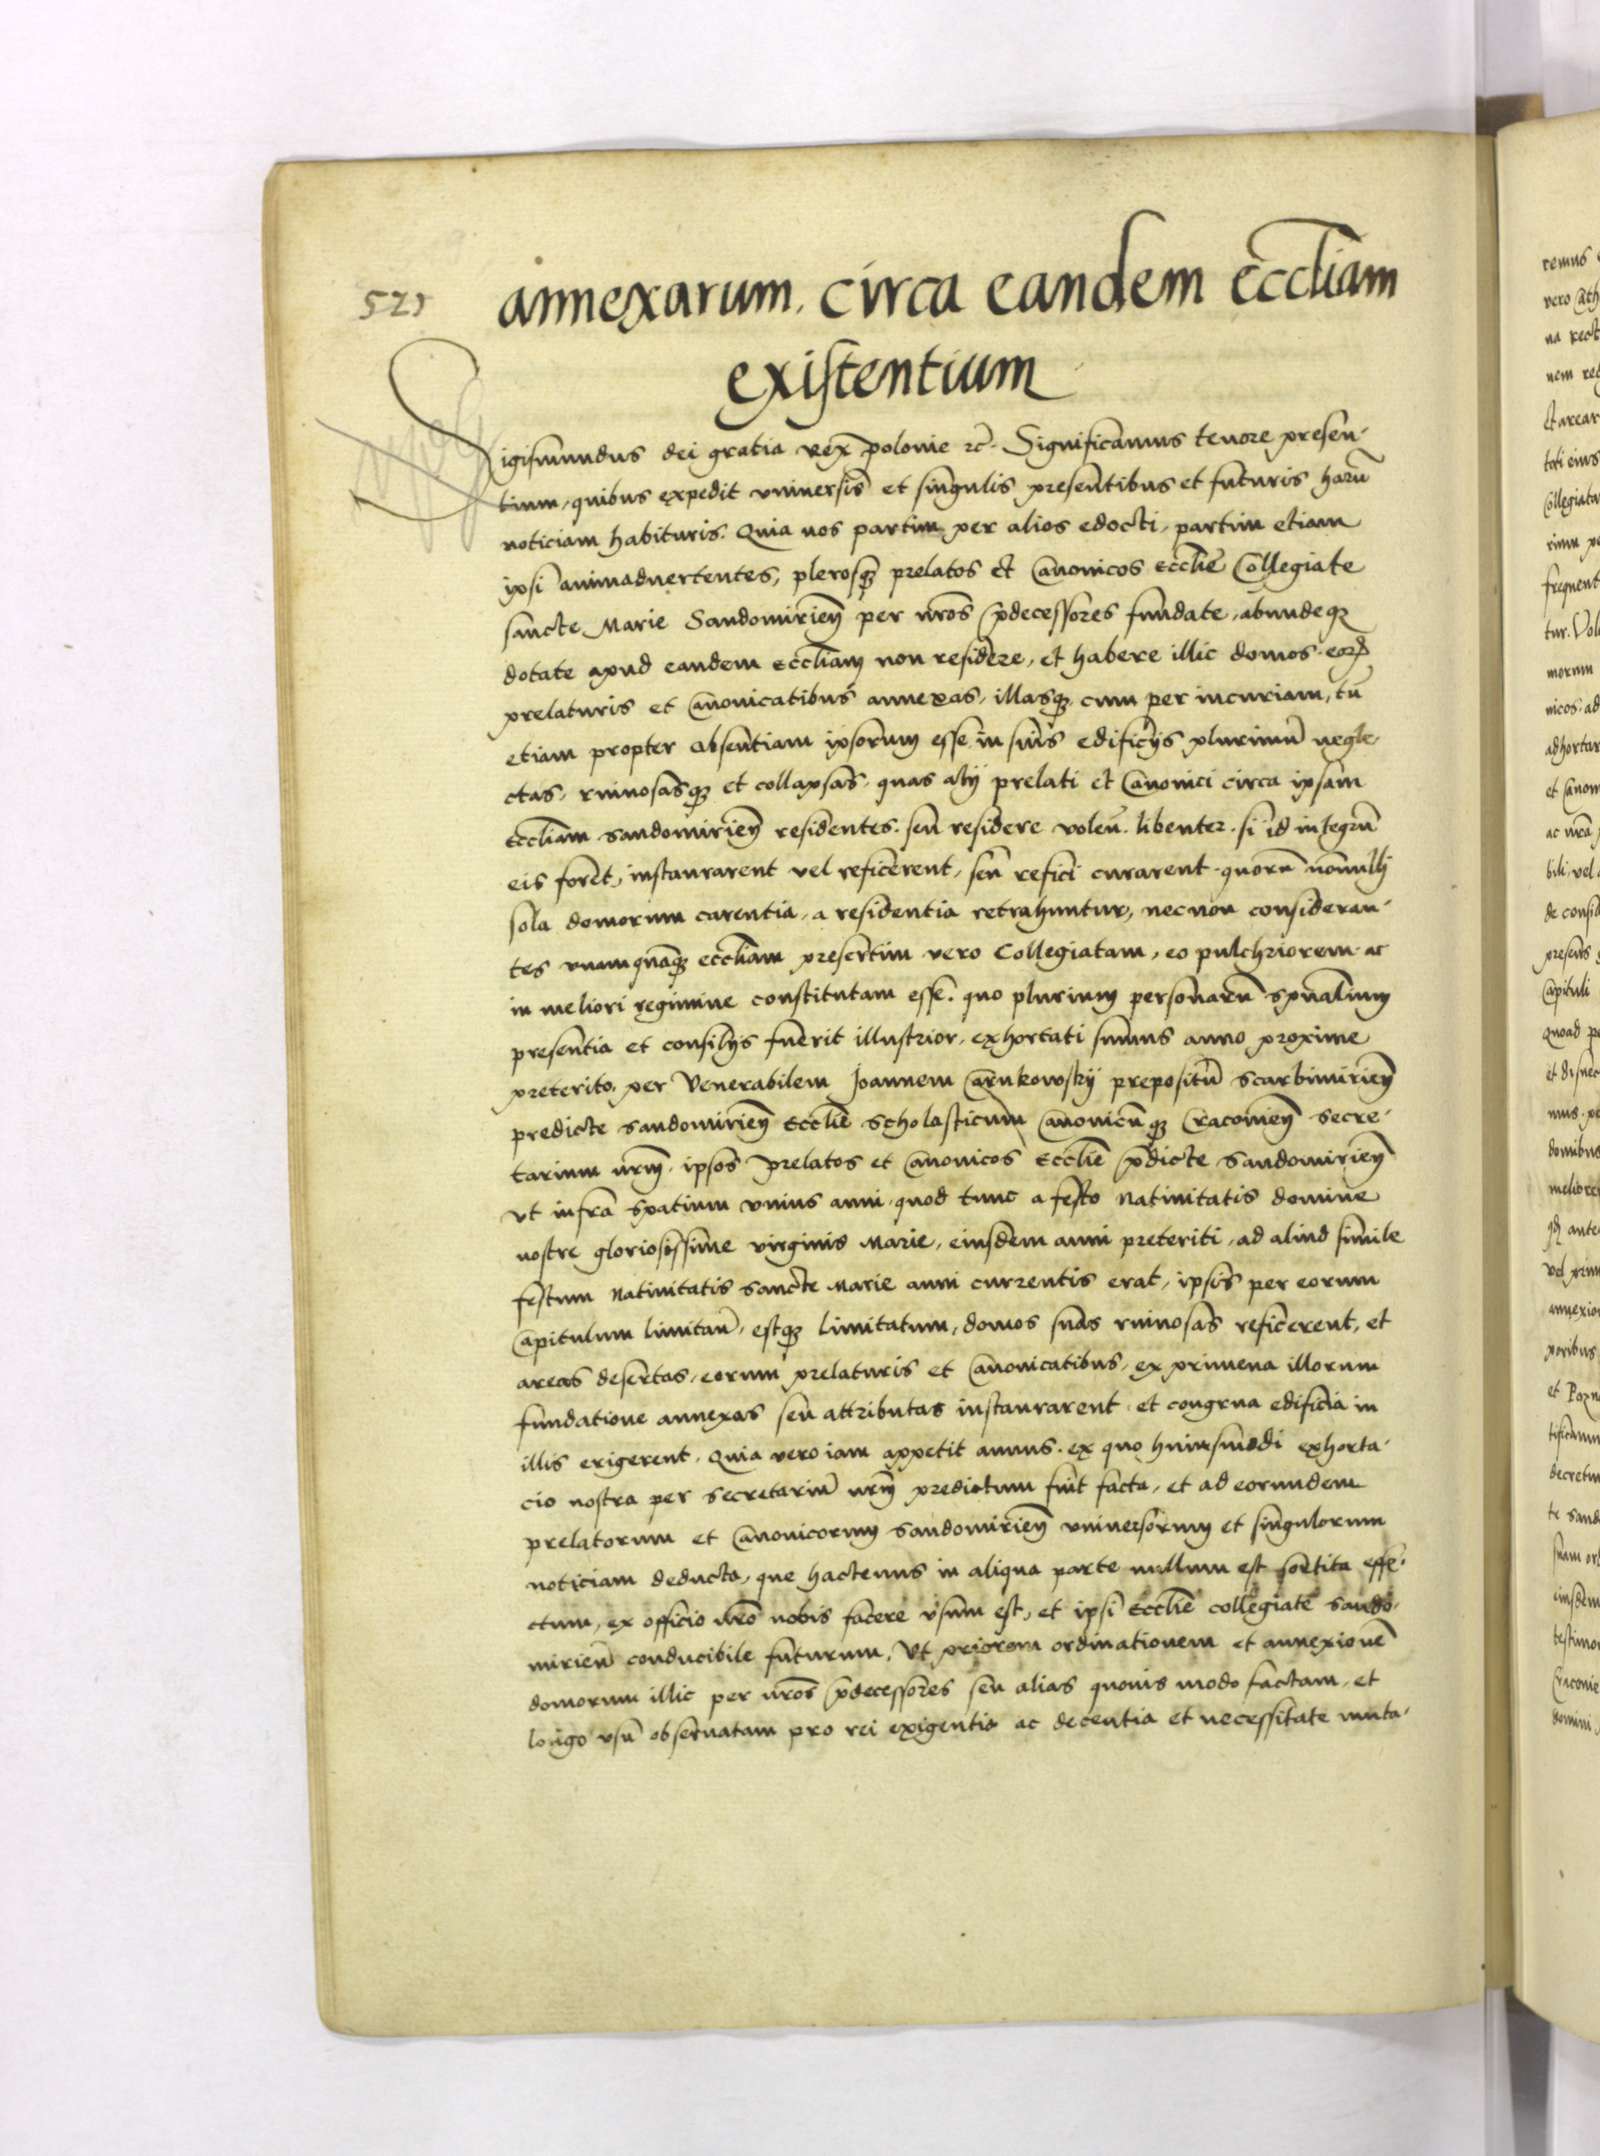 521
annexarum, circa eandem Eccl̄iam
existentium
Sigismundus dei gratia Rex polonie ꝛc̄. Significamus tenore presen-
tium, quibus expedit vniuersis et singulis presentibus et futuris harū
noticiam habituris. Quia nos partim per alios edocti, partim etiam
ipsi animaduertentes, plerosqꝫ prelatos et Canonicos Eccl̄ie Collegiate
sancte Marie Sandomirien̄ per nr̄os p̄decessores fundate, abundeqꝫ
dotate apud eandem Eccl̄iam non residere, et habere illic domos eorꝝ
prelaturis et Canonicatibus annexas, illasqꝫ cum per incuriam, tū
etiam propter absentiam ipsorum esse in suis edificijs plurimū negle-
ctas, ruinosasqꝫ et collapsas, quas alij prelati et Canonici circa ipsam
Eccl̄iam Sandomirien̄ residentes, seu residere volen̄. libenter, si id integrū
eis foret, instaurarent vel reficerent, seu refici curarent, quorū nōnulli
sola domorum carentia, a residentia retrahuntur, necnon consideran-
tes vnamquāqꝫ eccl̄iam presertim vero Collegiatam, eo pulchriorem ac
in meliori regimine constitutam esse, quo plurium personarū sp̄ualium
presentia et consilijs fuerit illustrior, exhortati sumus anno proxime
preterito, per Venerabilem Joannem Carnkowskij prepositū Scarbimirien̄
predicte Sandomirien̄ Eccl̄ie Scholasticum Canonicūqꝫ Cracouien̄ Secre-
tarium nr̄m, ipsos prelatos et Canonicos Eccl̄ie p̄dicte Sandomirien̄
vt infra spatium vnius anni, quod tunc a festo Natiuitatis domine
nostre gloriosissime virginis Marie, eiusdem anni preteriti, ad aliud simile
festum Natiuitatis sancte Marie anni currentis erat, ipsis per eorum
Capitulum limitan̄, estqꝫ limitatum, domos suas ruinosas reficerent, et
areas desertas, eorum prelaturis et Canonicatibus, ex primeua illorum
fundatione annexas seu attributas instaurarent, et congrua edificia in
illis erigerent. Quia vero iam appetit annus, ex quo huiusmodi exhorta-
cio nostra per Secretariū nr̄m predictum fuit facta, et ad eorundem
prelatorum et Canonicorum Sandomirien̄ vniuersorum et singulorum
noticiam deducta, que hactenus in aliqua parte nullum est sortita effe-
ctum, ex officio nr̄o nobis facere visum est, et ipsi Eccl̄ie collegiate Sando-
mirien̄ conducibile futurum, Vt priorem ordinationem et annexionē
domorum illic per nr̄os p̄decessores seu alias quouis modo factam, et
longo vsū obseruatam pro rei exigentia ac decentia et necessitate muta-